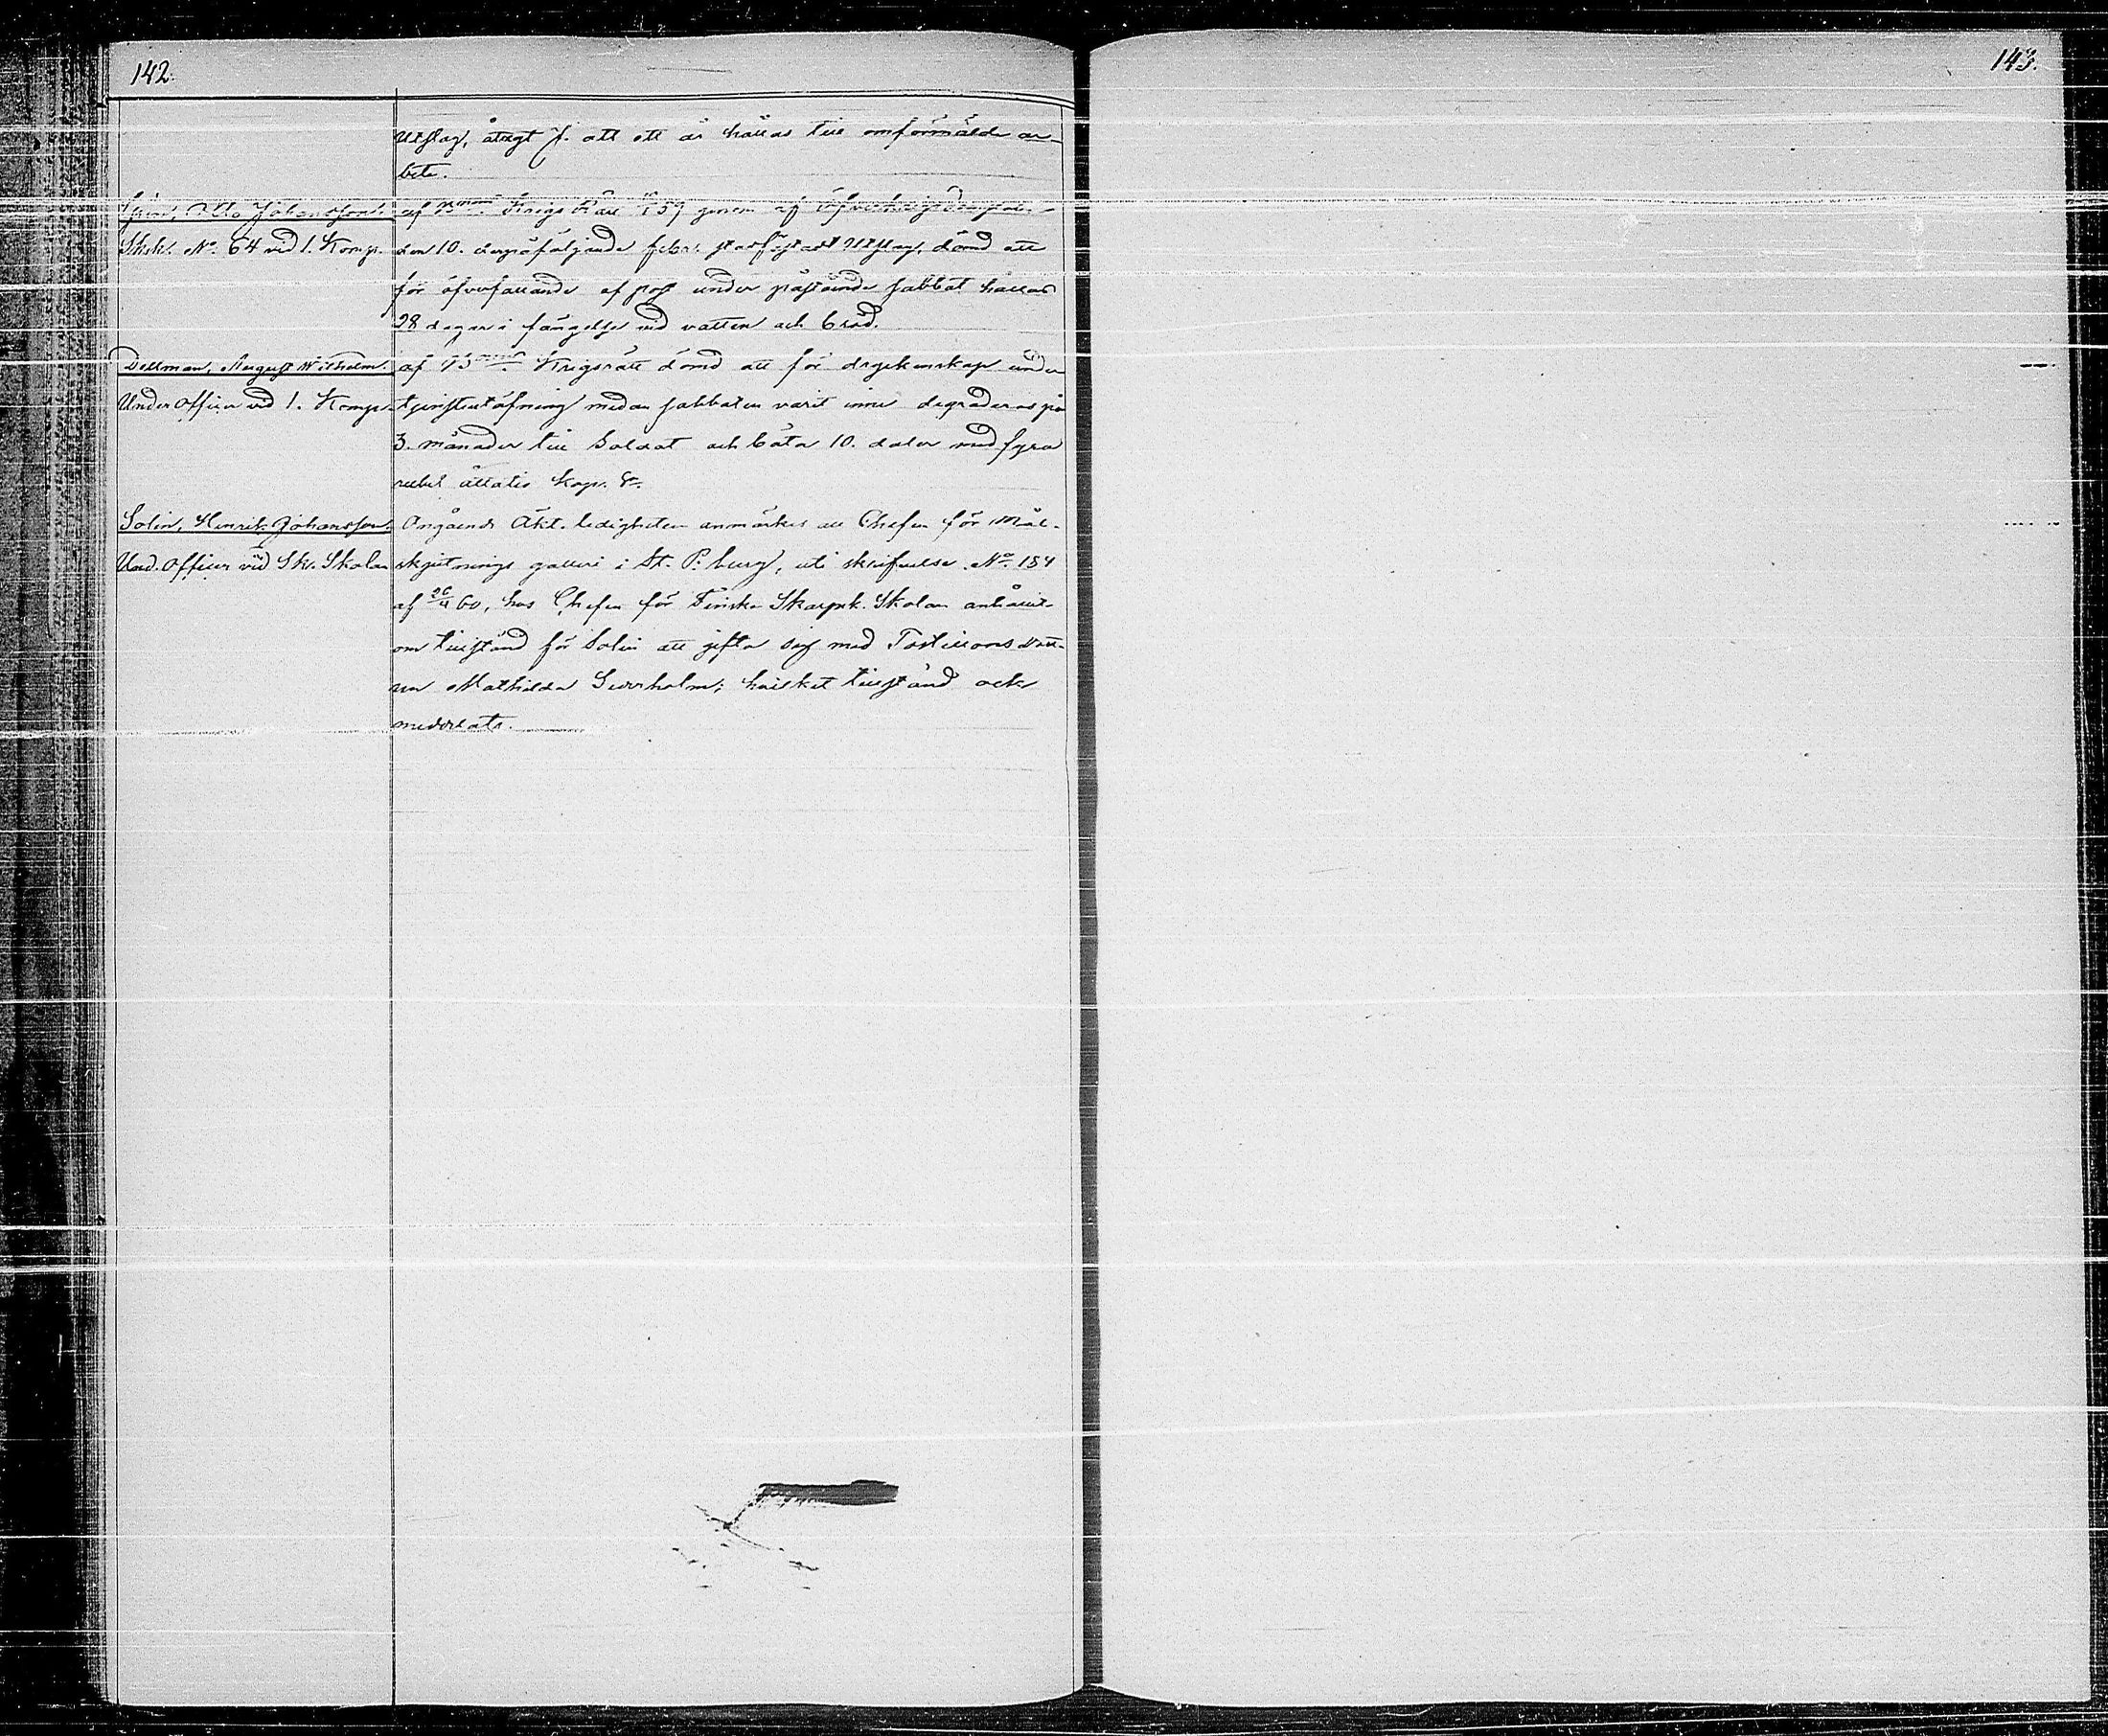 142.
143.
Utslag, ålagt J. att ett år hållas till omförmälde ar-
bete.
Otto Johansson. af Krigs Rätt 59 genom af Öfverkrigsdomstolen
Sksk. No. 64 vid 1. Komp. den 10. derpåföljande febr. stadfästadt Utslag, dömd att
för öfverfallande af post under påstående sabbat hållas
28 dagar i fängelse vid vatten och bröd.
Dellman, August Wilhelm. af Krigsrätt dömd att för dryckenskap under
Under Officer vid 1. Komp. tjenstutöfning medan sabbaten varit inne degraderas på
3. månader till Soldat och böta 10. daler med fyra
rubel åttatio kop. Sr.
Solin, Henrik Johansson. Angående Äkt. ledigheten anmärkes att Chefen för Mål-
Und. Officer vid Sk. Skolan skjutnings galleri i St. P:burg, uti skrifvelse No. 154
af 26/4 60, hos Chefen för Finska Skarpsk. Skolan anhållit
om tillstånd för Solin att gifta sig med Postillons dott-
ren Mathilda hvilket tillstånd ock
meddelats.